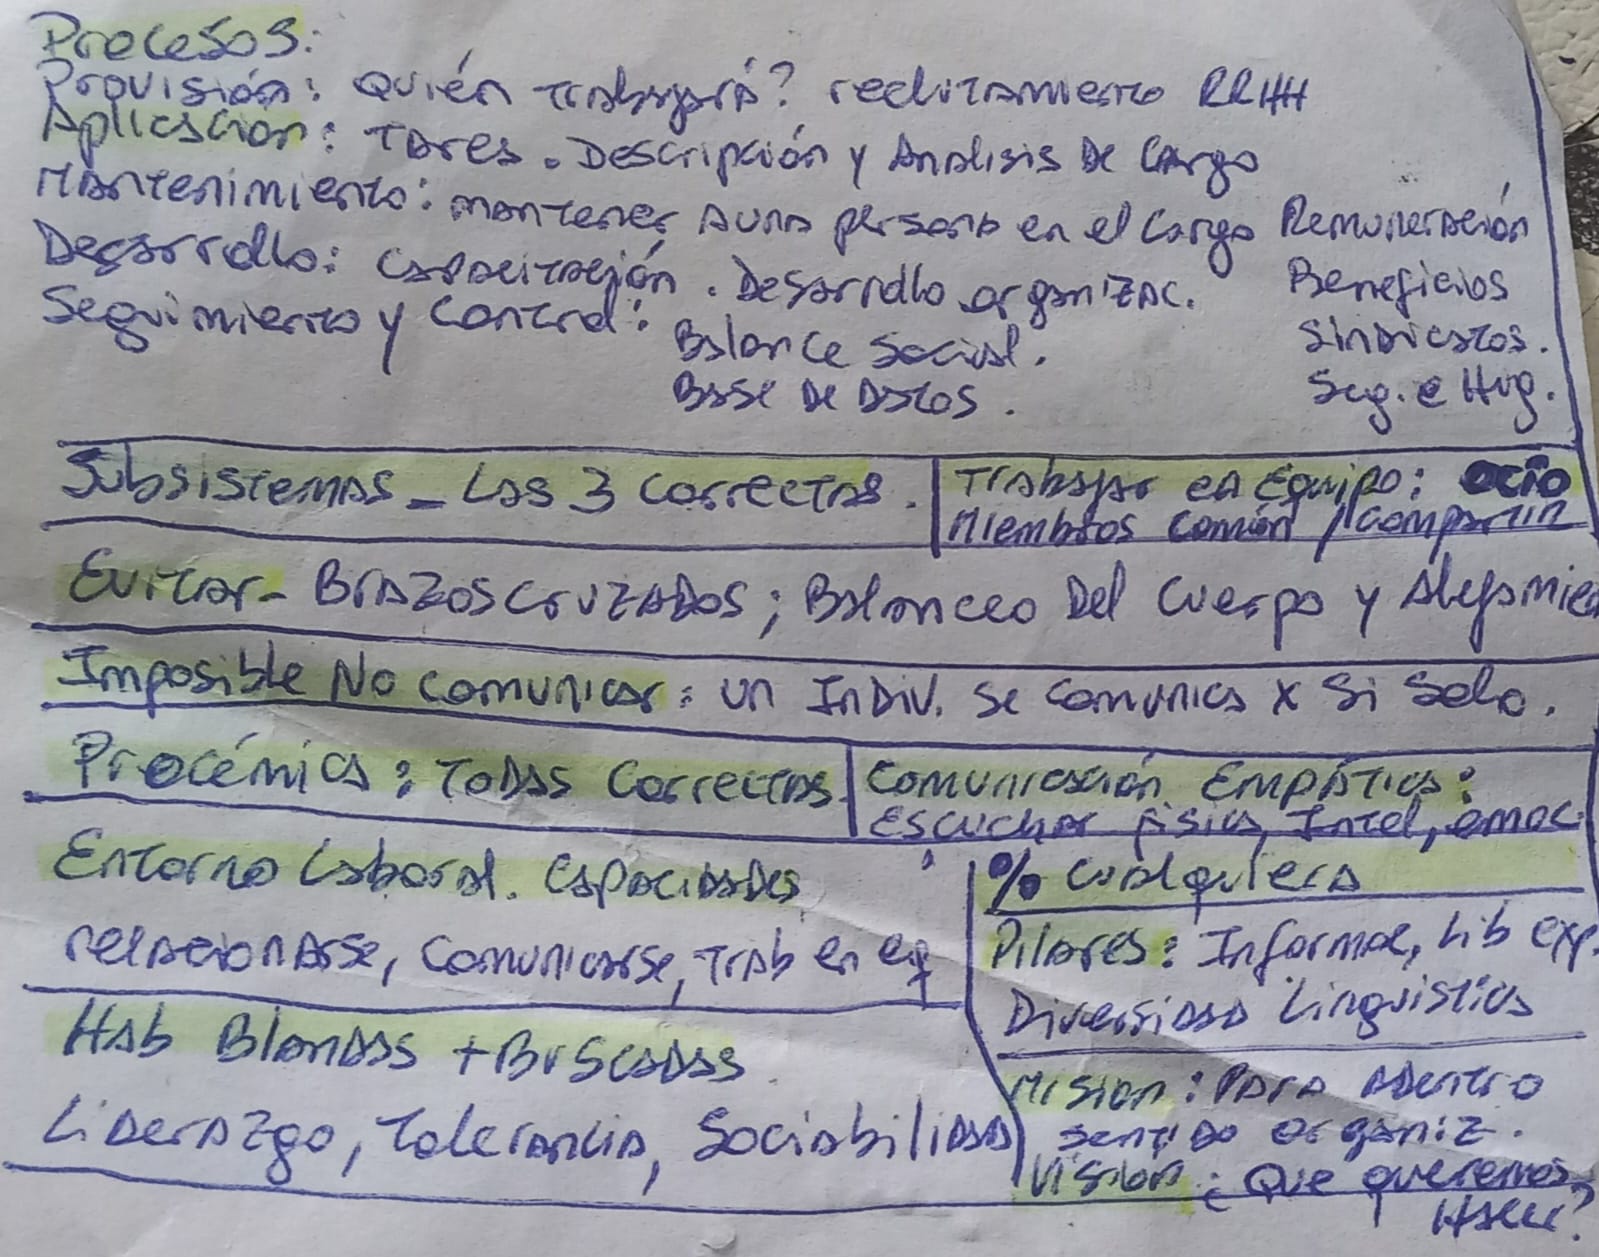 Procesos:
Provisión: Quién trabajará? reclutamiento RRHH
Aplicación: Tares. Descripción y Analisis de Cargo
Mantenimiento: mantener a una persona en el Cargo Remuneración
Desarrollo: Capacitación. Desarrollo organizac. Beneficios
Seguimiento y Control: Balance Social. Sindicatos.
Base de Datos. Seg. e Hig.
Subsistemas - Las 3 correctas.
Trabajar en Equipo: ocio
Miembros Común / Compartir
Evitar - Brazos cruzados; Balanceo Del Cuerpo y Alejamien
Imposible No comunicar: un Indiv. se comunica x si solo.
Procémica: Todas Correctas.
Comunicación Empática:
Escuchar física, Intel, emoc.
Entorno Laboral. Capacidades
relacionarse, comunicarse, Trab en eq
% Cualquiera
Pilares: Informac, Lib exp.
Diversidad Linguistica
Hab Blandas + Buscadas
Liderazgo, Tolerancia, Sociabilidad
Mision: Para adentro
sentido organiz.
Vision: ¿Que queremos
Hacer?